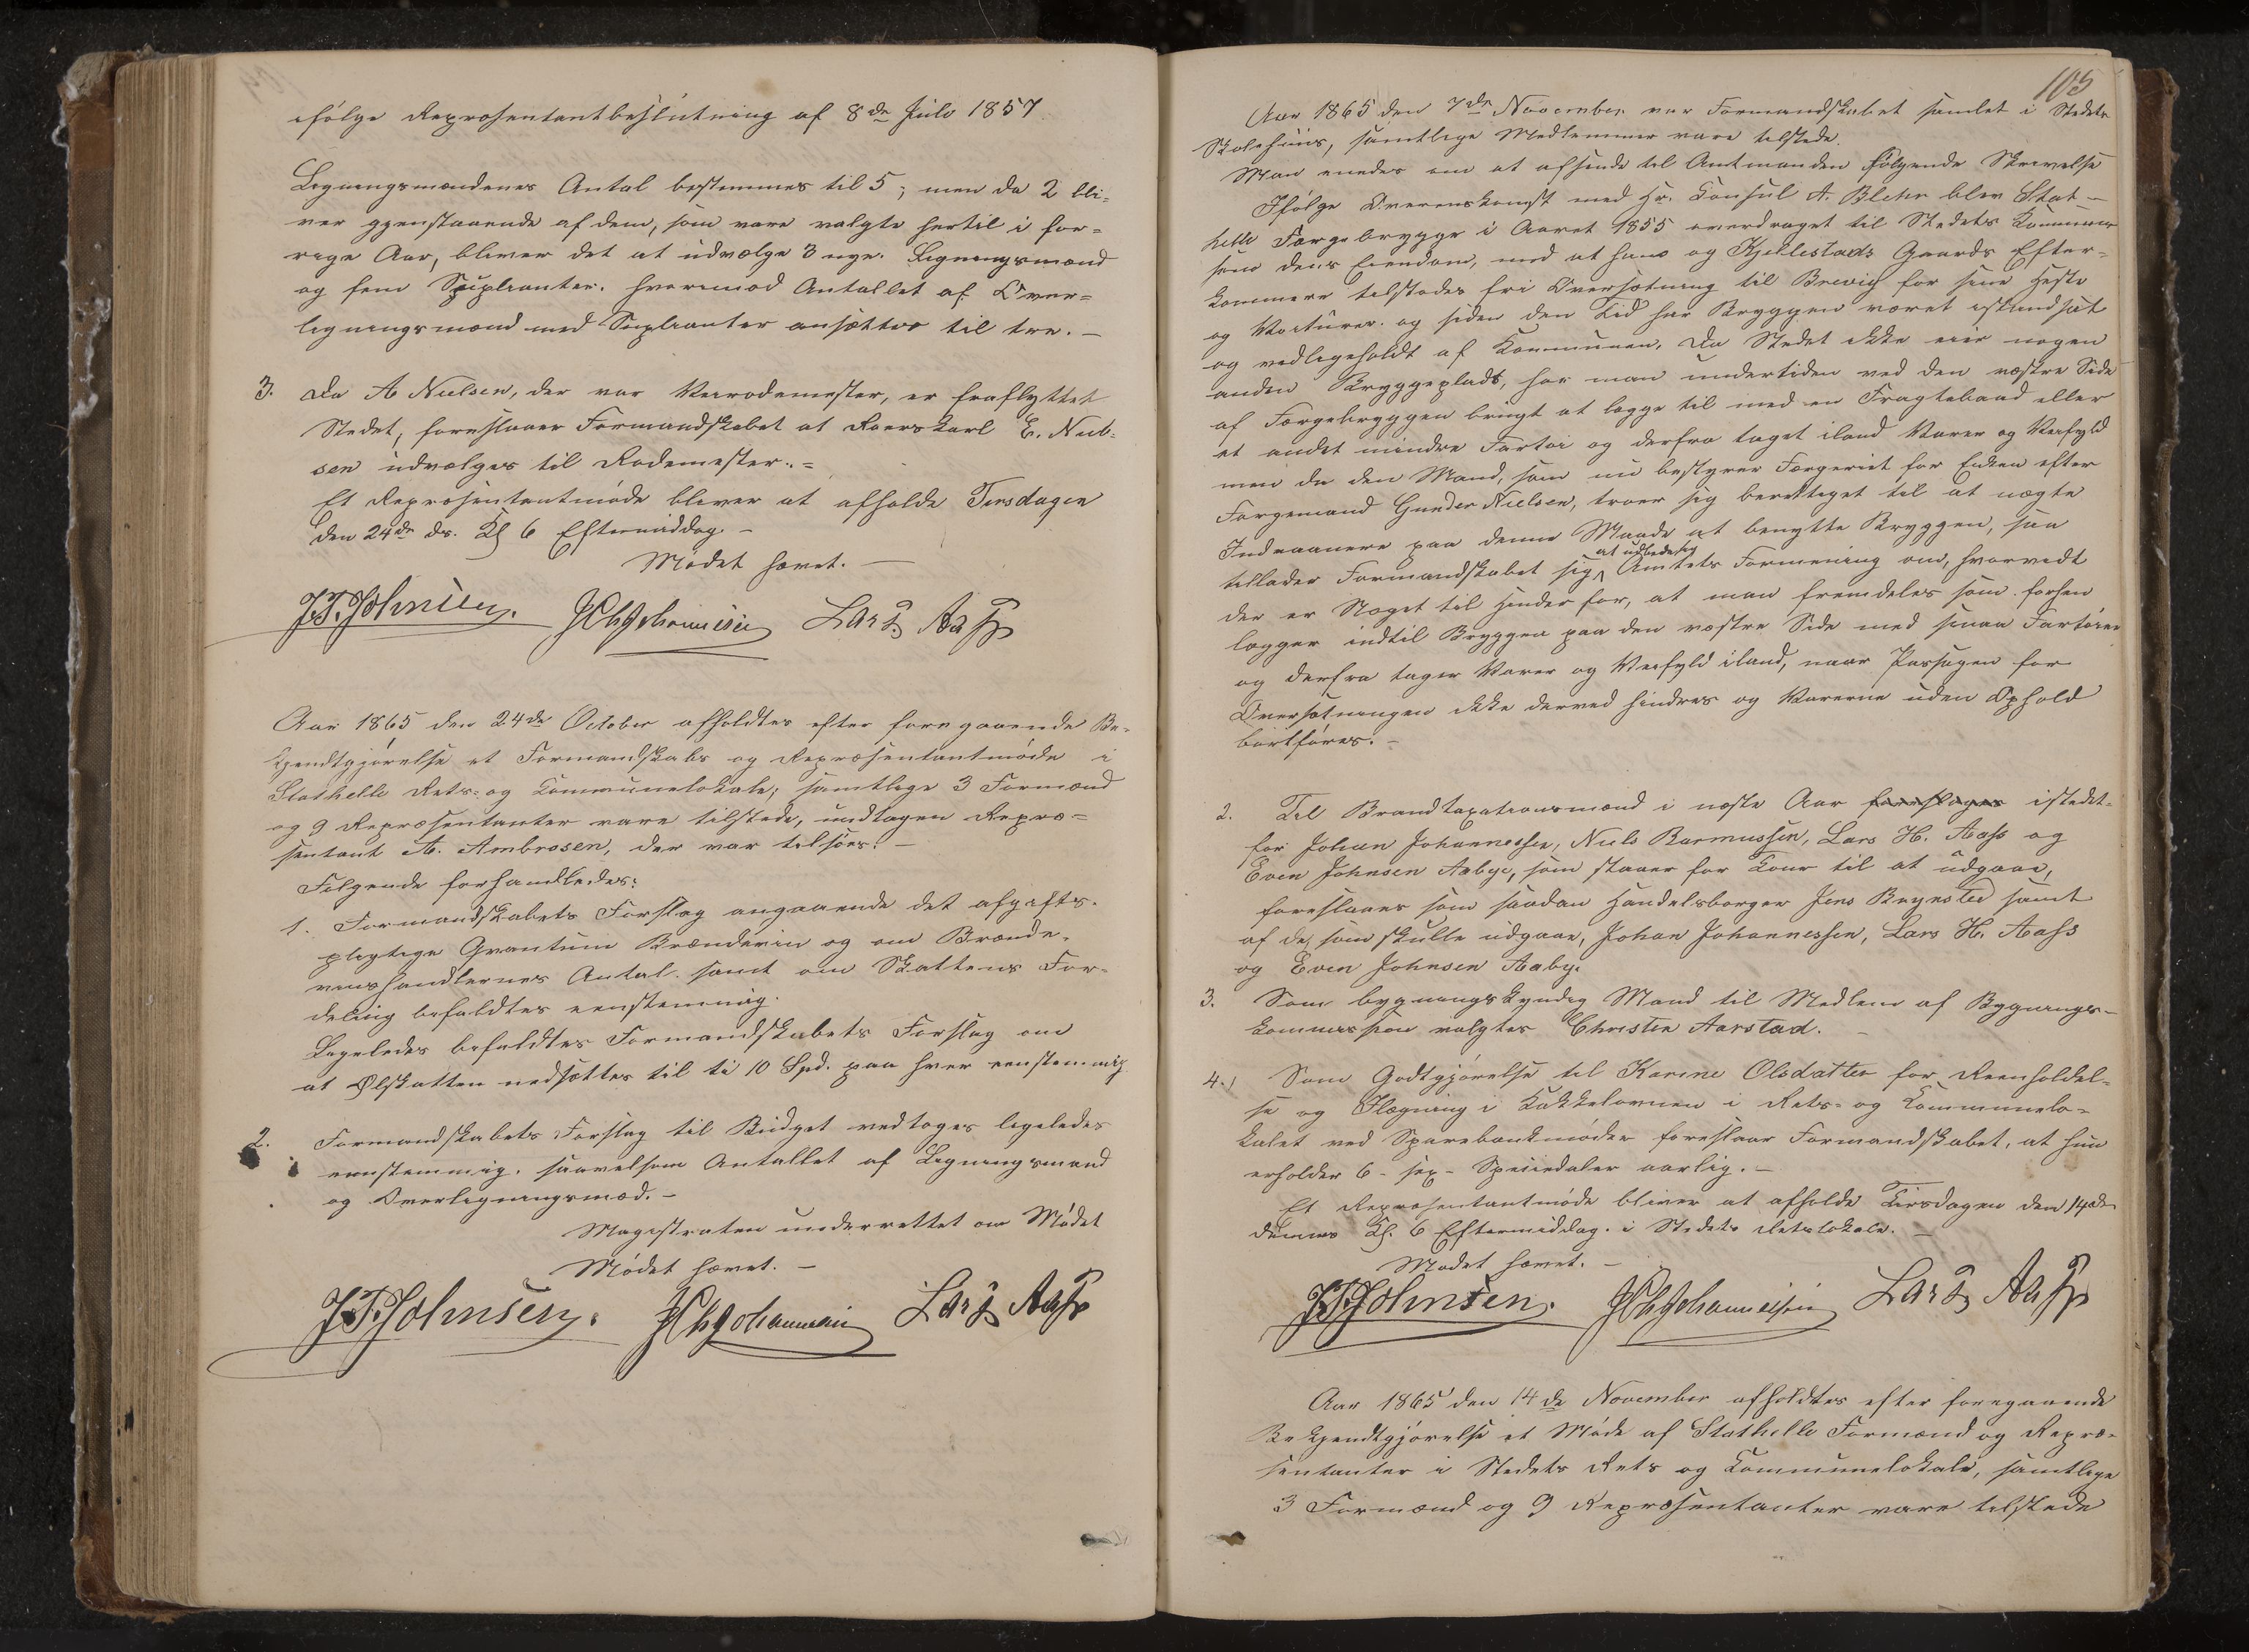 ifølge Repræsentantbeslutning af 8de Juli 1857.
Ligningsmændenes Antal bestemmes til 5; men da 2 bli-
ver gjenstaaende af dem, som vare valgte hertil i for-
rige Aar, bliver det at udvælge 3 nye Ligningsmænd
og fem Suplianter. hvorimod Antallet af Over-
ligningsmænd med Suplianter ansættes til tre. —
3. Da A Nielsen, der var Veirodemester, er fraflyttet
Stedet, foreslaaer Formandskabet at Roerskarl E. Niel-
sen udvælges til Rodemester. =
Et Repræsentantmøde bliver at afholde Tirsdagen
den 24de ds. Kl 6 Eftermiddag. —
Mødet hævet. —
J.T. Johnsen. J Chr Johannesen Lars Aass
Aar 1865 den 24de October afholdtes efter foregaaende Be-
kjendtgjørelse et Formandskabs og Repræsentantmøde i
Stathelle Rets- og Communelokale; samtlige 3 Formænd
og 9 Repræsentanter vare tilstede, undtagen Repræ-
sentant A. Ambrosen, der var tilsøes. —
Følgende forhandledes:
1. Formandskabets Forslag angaaende det afgifts-
pligtige Qvantum Brændeviin og om Brænde-
viinshandlernes Antal. samt om Skattens For-
deling befaldtes eenstemmig.
Ligeledes befaldtes Formandskabets Forslag om
at Ølskatten nedsættes til ti 10 Spd. paa hver eenstemmig.
2. Formandskabets Forslag til Budget vedtoges ligeledes
eenstemmig. saavelsom Antallet af Ligningsmænd
og Overligningsmæd. —
Magistraten underrettet om Mødet
Mødet hævet. —
J.T. Johnsen. J Chr Johannesen Lars Aass
105
Aar 1865 den 7de November var Formandskabet samlet i Stedets
Skolehuus, samtlige Medlemmer vare tilstede.
Man enedes om at afsende til Amtmanden følgende Skrivelse
Ifølge Overenskomst med Hr. Consul A. Blehr blev Stat-
helle Færgebrygge i Aaret 1855 overdraget til Stedets Kommune
som dens Eiendom, mod at hans og Kjellestads Gaards Efter-
kommere tilstodes fri Oversætning til Brevig for sine Heste
og Voiturer. og siden den Tid har Bryggen været istandsat
og vedligeholdt af Kommunen. Da Stedet ikke eier nogen
anden Bryggeplads, har man undertiden ved den væstre Side
af Færgebryggen brugt at lægge til med en Fragtebaad eller
et andet mindre Fartøi og derfra taget iland Varer og Veifyld
men da den Mand, som nu bestyrer Færgeriet for Enken efter
Færgemand Gunder Nielsen, troer sig berettiget til at nægte
Indvaanere paa denne Maade at benytte Bryggen, saa
tillader Formandskabet sig at udbede sig Amtets Formening om, hvorvidt
der er Noget til Hinder for, at man fremdeles som forhen
lægger indtil Bryggen paa den væstre Side med smaa Fartøier
og derfra tager Varer og Veifyld iland, naar Passagen for
Oversætningen ikke derved hindres og Varerne uden Ophold
bortføres. —
2. Til Brandtaxationsmænd i næste Aar foreslages istedet-
for Johan Johannessen, Niels Rasmussen, Lars H. Aass og
Even Johnsen Aabye, som staaer for Tour til at udgaae,
foreslaaes som saadan Handelsborger Jens Brynsted samt
af de, som skulle udgaae, Johan Johannessen, Lars H. Aass
og Even Johnsen Aaby.
3. Som bygningskyndig Mand til Medlem af Bygnings-
kommission valgtes Christen Aarstad. —
4.) Som Godtgjørelse til Karine Olsdatter for Reenholdel-
se og Ilægning i Kakkelovnen i Rets- og Communelo-
kalet ved Sparebankmøder foreslaar Formandskabet, at hun
erholder 6 - sex - Speciedaler aarlig. —
Et Repræsentantmøde bliver at afholde Tirsdagen den 14de
dennes Kl. 6 Eftermiddag. i Stedets Retslokale. —
Mødet hævet. —
J.T. Johnsen. J Chr Johannessen Lars Aass
Aar 1865 den 14de November afholdtes efter foregaaende
Bekjendtgjørelse et Møde af Stathelle Formænd og Repræ-
sentanter i Stedets Rets og Communelokale, samtlige
3 Formænd og 9 Repræsentanter vare tilstede